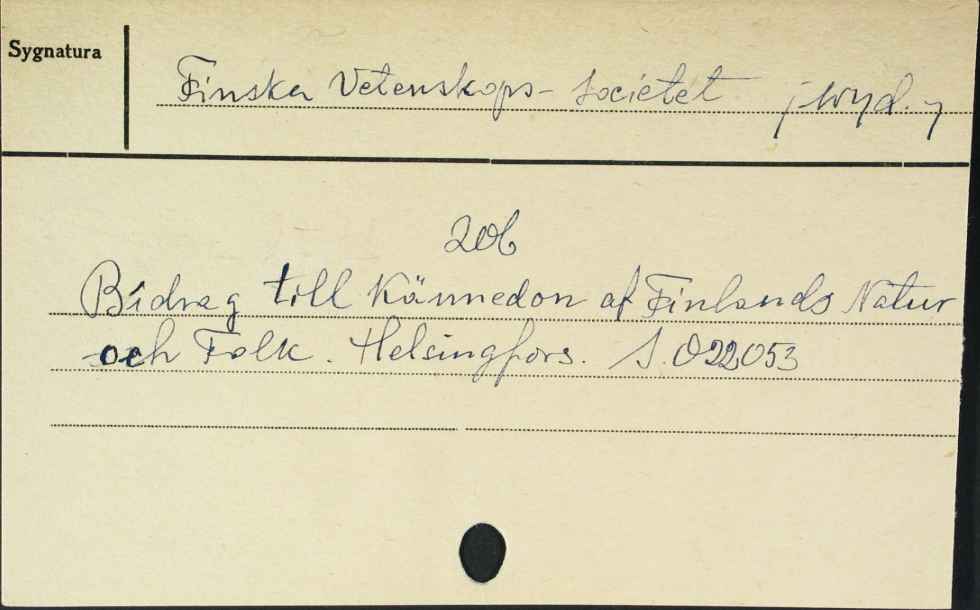 Sygnatura
Finska Vetenskops-Societet /wyd./
Zob
Bidrag till Kännedon af Finlands Natur
och Folk. Helsingfors. S.022053